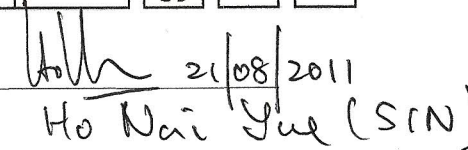 21/08/2011
Ho Nai Yue (SIN)